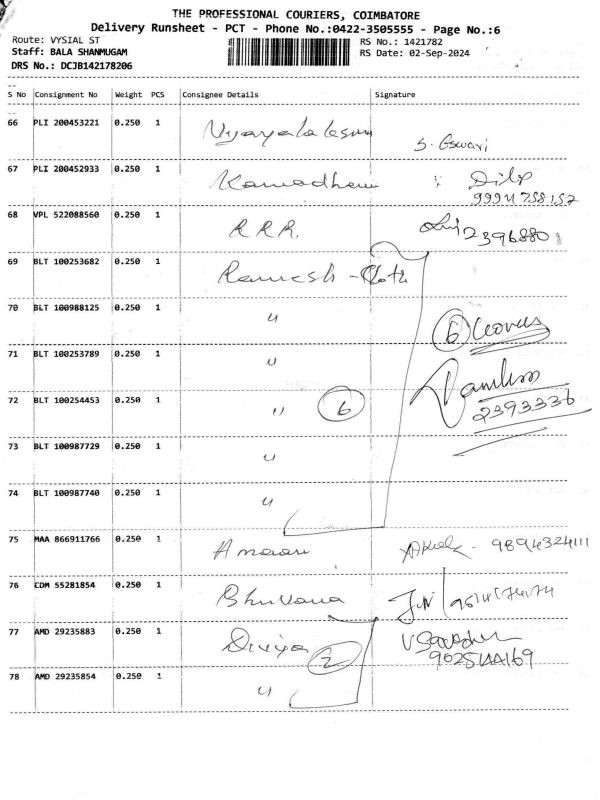 THE PROFESSIONAL COURIERS, COIMBATORE
Delivery Runsheet - PCT - Phone No.:0422-3505555 - Page No.:6
Route: VYSIAL ST
RS No.: 1421782
Staff: BALA SHANMUGAM
RS Date: 02-Sep-2024
DRS No.: DCJB142178206
S No Consignment No Weight PCS Consignee Details Signature
66 PLI 200453221 0.250 1
S. Eswari
67 PLI 200452933 0.250 1 Kamadhenu Dilip
68 VPL 522088560 0.250 1 R.R.R. 2396880
69 BLT 100253682 0.250 1 Ramesh - Cloth
70 BLT 100988125 0.250 1 "
6 Covers
71 BLT 100253789 0.250 1 "
72 BLT 100254453 0.250 1 " 6
2393336
73 BLT 100987729 0.250 1 "
74 BLT 100987740 0.250 1 "
75 MAA 866911766 0.250 1 9894324111
76 COM 55281854 0.250 1 Bhuvana
77 AMD 29235883 0.250 1 Divya 2
78 AMD 29235854 0.250 1 "